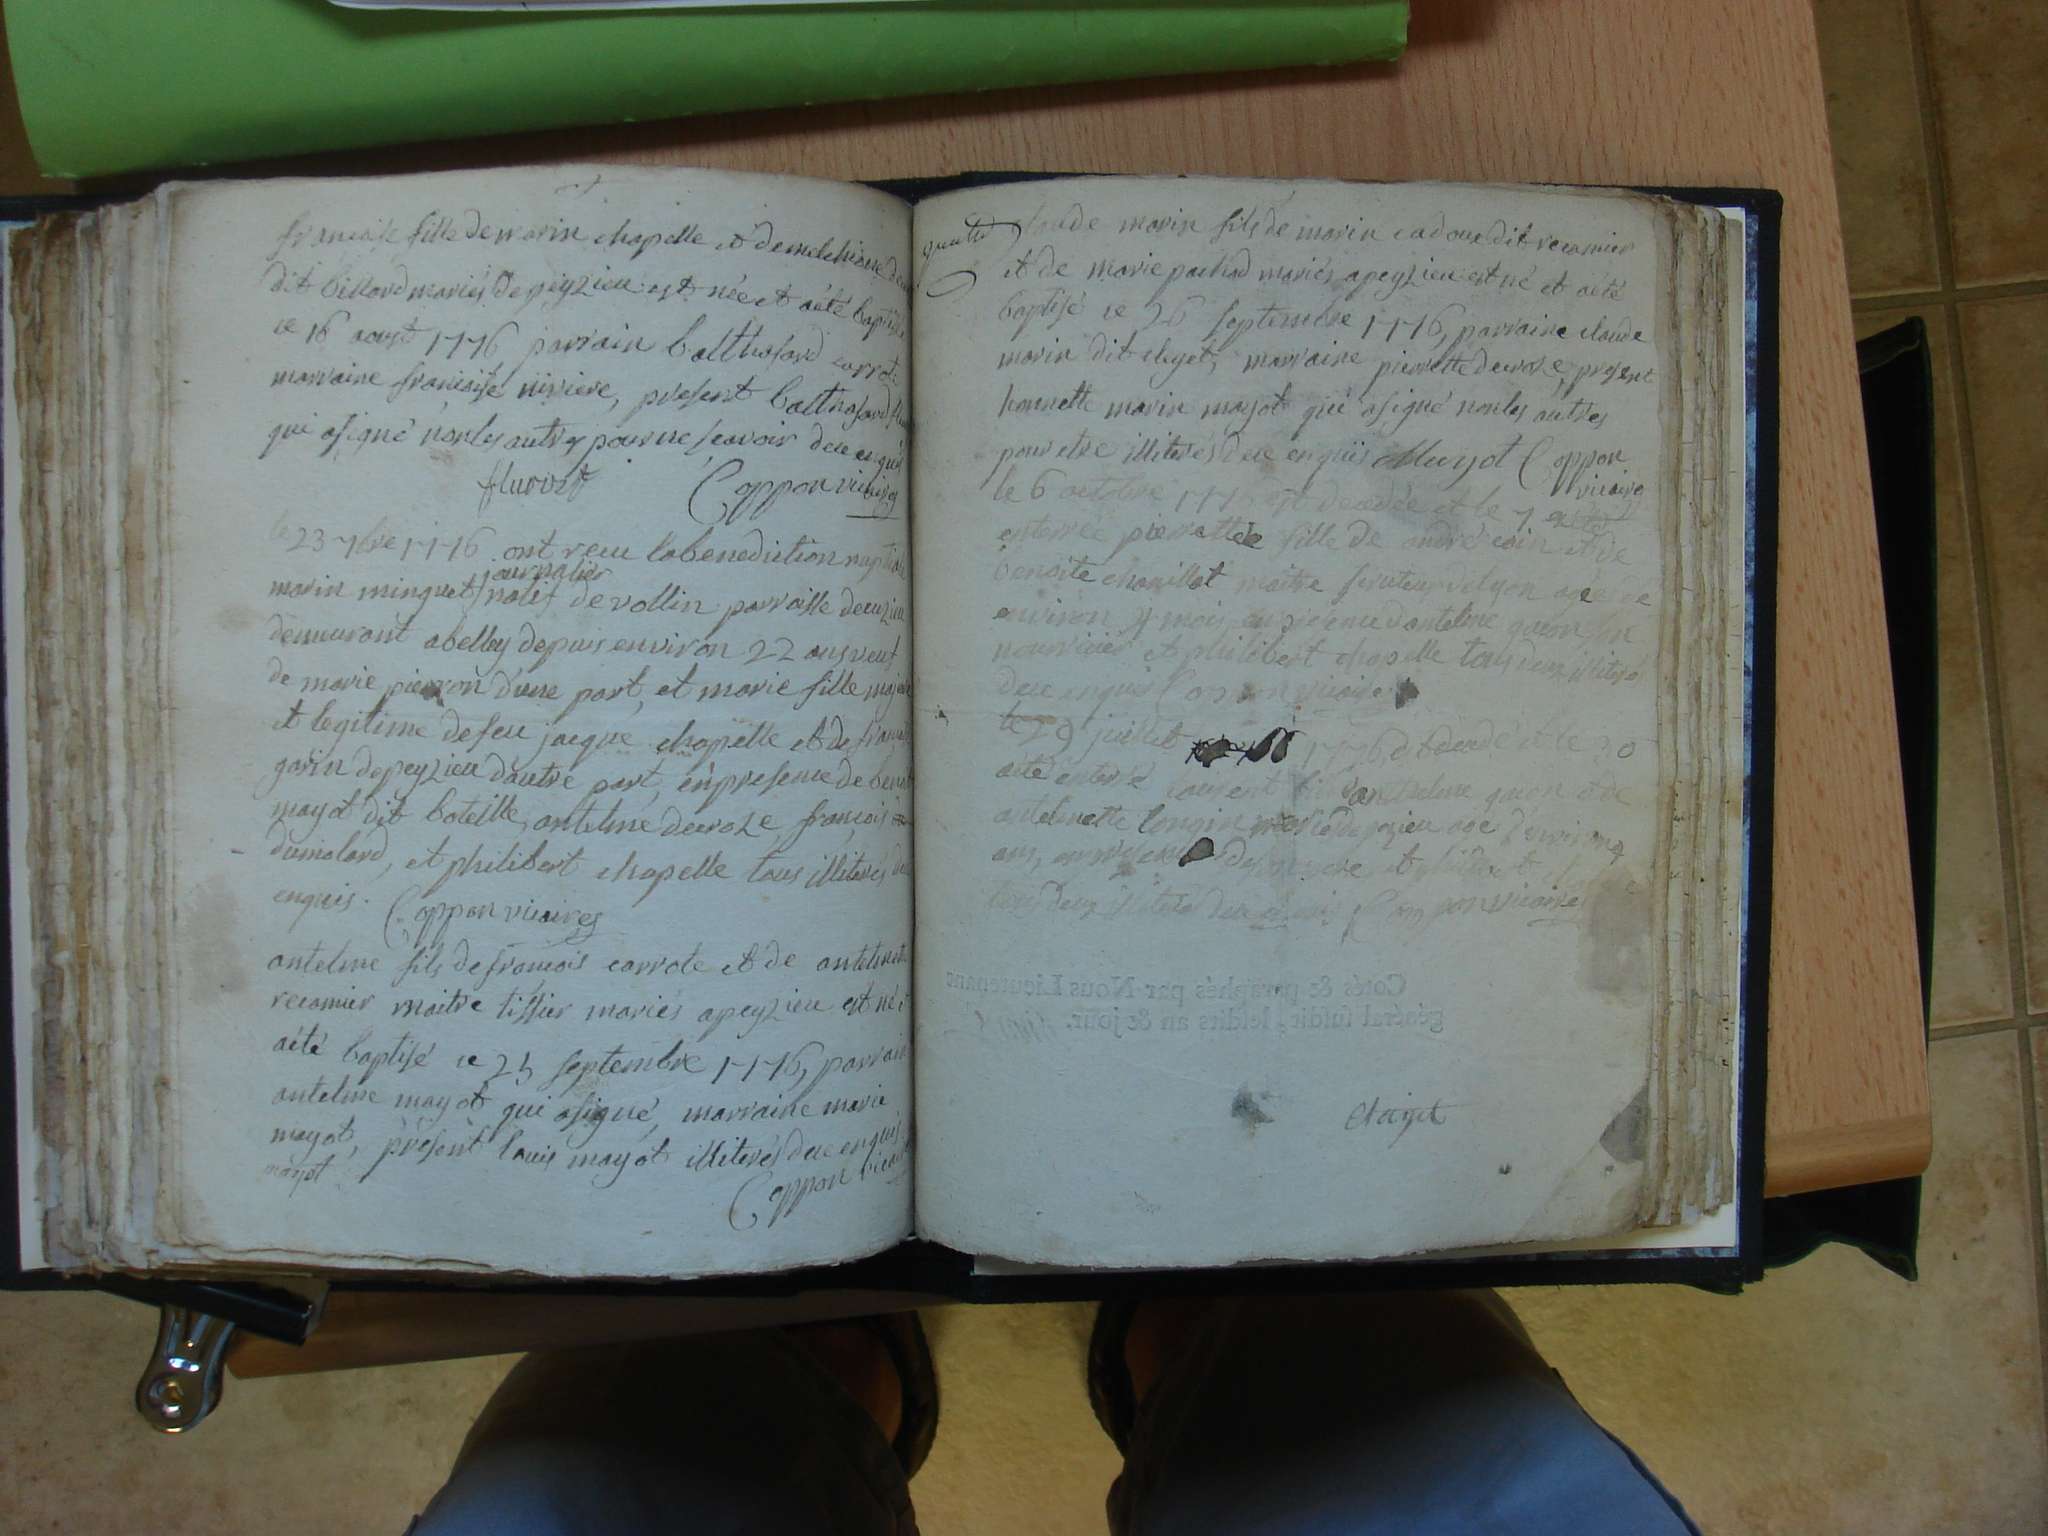 francoise fille de marin chapelle et de melchione
dit billard mariés de peyzieu est née et aété baptisée
ce 16 aoust 1776 parrain balthasard carrote
marraine francoise niviere, present balthasard
qui asigné non les autres pour ne scavoir dece enquis
fluvret Coppon vicaires
le 23 7bre 1776 ont recu la benediction nuptiale
journalier
marin minguet natif de vollin parroisse deceyzieu
demeurant abelley depuis environ 22 ans veuf
de marie pierron d'une part, et marie fille majeure
et legitime defeu jacque chapelle et de
garin depeyzieu dautre part, en presence de benoit
mayot dit boteille, antelme decroze françois
dumolard, et philibert chapelle tous illiterés dece
enquis. Coppon vicaires
antelme fils de francois carrote et de antelmette
recamier maitre tissier mariés apeyzieu est né et
aété baptisé ce 25 septembre 1776, parrain
antelme mayot qui asigné, marraine marie
mayot, present louis mayot illiterés dece enquis
mayot Coppon vicaires
quatre claude marin fils de marin cadoue dit recamier
et de marie pachod mariés apeyzieu est né et aété
baptisé ce 26 septembre 1776, parraine claude
marin dit cluyet, marraine pierrette decroze, present
honnette marin mayot qui asigné non les autres
pour etre illiterés dece enquis Mayot Coppon
vicaires
le 6 octobre 177 est decedée et le 7 aété
enterrée pierrette fille de andré coin et de
benoite chavillot maitre de lyon agée de
environ 4 mois, en presence dantelme gueon son
nourricier et philibert chapelle tous deux illiterés
dece enquis Coppon vicaires
le 29 juillet 1776, est decedé et le 30
aété enterré laurent fils antelme gueon et de
antelmette longin mariés depezieu age denviron
ans, en presence de son pere et philibert chapelle
tous deux illiterés dece enquis Coppon vicaires
Cotés & paraphés par Nous Lieutenant
général susdit, lesdits an & jour.